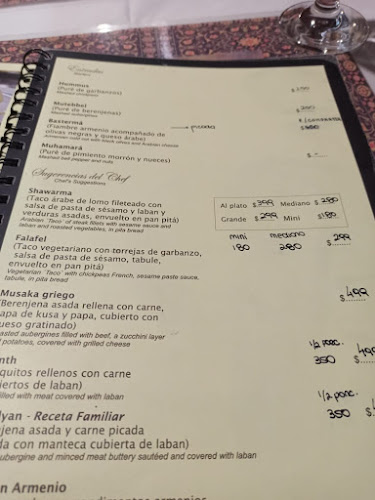 Entradas
Starters
Hummus
(Puré de garbanzos)
Mashed chickpeas
$200
Mutebbel
(Puré de berenjenas)
Mashed aubergines
$200
Basterma → picada
(Fiambre armenio acompañado de
olivas negras y queso árabe)
Armenian cold cut with black olives and Arabian cheese
Muhamara
(Puré de pimiento morrón y nueces)
Mashed bell pepper and nuts
$ -
Sugerencias del Chef
Chef's Suggestions
Shawarma
(Taco árabe de lomo fileteado con
salsa de pasta de sésamo y laban y
verduras asadas, envuelto en pan pitá)
Arabian "Taco" of steak fillets with sesame sauce and
laban and roasted vegetables, in pita bread
Al plato $399 Mediano $280
Grande $299 Mini $180
Falafel
(Taco vegetariano con torrejas de garbanzo,
salsa de pasta de sésamo, tabule,
envuelto en pan pitá)
Vegetarian "Taco" with chickpeas French, sesame paste sauce,
tabule, in pita bread
mini mediano $299
180 280
Musaka griego
(Berenjena asada rellena con carne,
apa de kusa y papa, cubierto con
ueso gratinado)
asted aubergines filled with beef, a zucchini layer
d potatoes, covered with grilled cheese
$499
nth
quitos rellenos con carne
iertos de laban)
filled with meat covered with laban
1/2 porc.
350
lyan - Receta Familiar
enjena asada y carne picada
da con manteca cubierta de laban)
ubergine and minced meat buttery sautéed and covered with laban
1/2 porc.
350
n Armenio